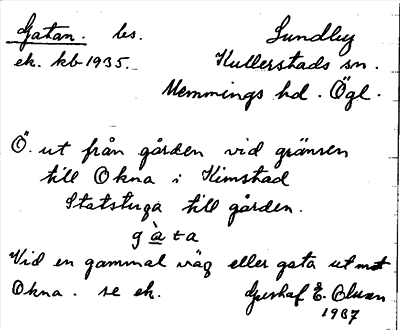 Gatan. bs. Lundby
ek. kb 1935. Kullerstads sn.
Memmings hd. Ögl.
Ö. ut från gården vid gränsen
till Okna i Kimstad
Statstuga till gården.
gàta
Vid en gammal väg eller gata ut mot
Okna. se ek. Gustaf E. Olsson
1937